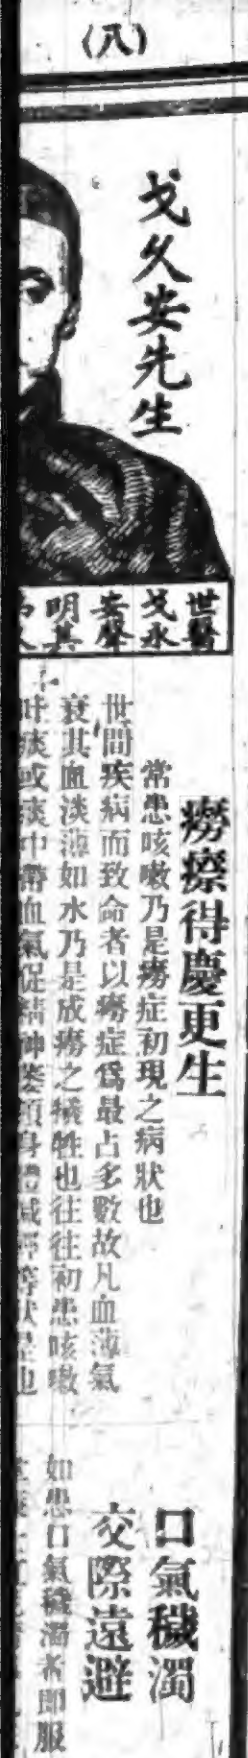 (八)
戈久安先生
世醫
戈永
安聲
明其
癆瘵得慶更生
常患咳嗽乃是癆症初現之病狀也
世間疾病而致命者以癆症爲最占多數故凡血薄氣
衰其血淡薄如水乃是成癆之犧牲也往往初患咳嗽
吐痰或痰中帶血氣促精神萎頓身體減輕等狀是也
口氣穢濁
交際遠避
如患口氣穢濁者卽服